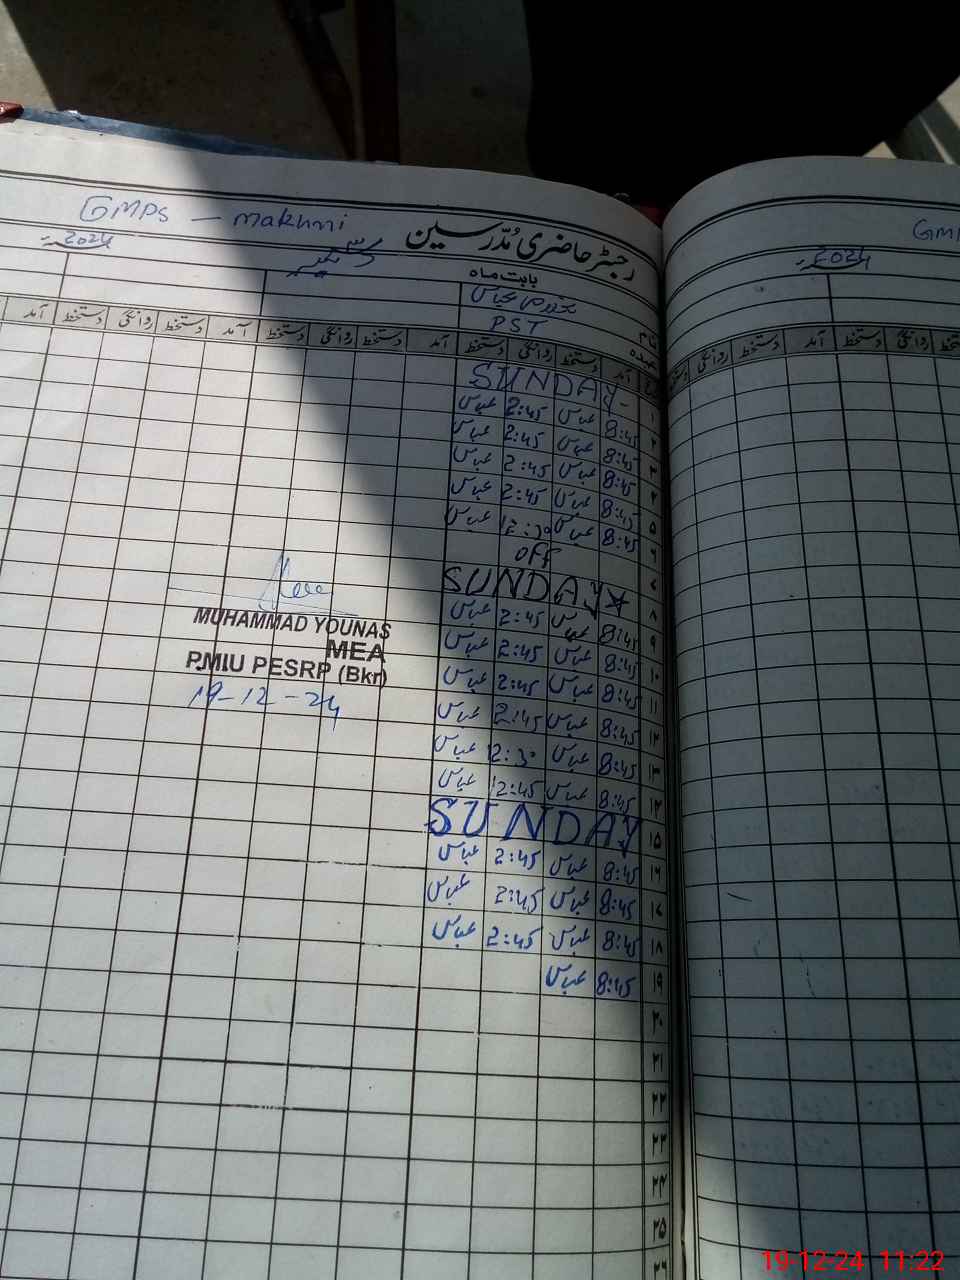 GMPS - makhni
GMP
رجسٹر حاضری مُدرّسین
2024
بابت ماہ
دسمبر
2024
نام
عباس
عہدہ
PST
آمد دستخط روانگی دستخط آمد دستخط روانگی دستخط آمد دستخط روانگی دستخط آمد
دستخط روانگی دستخط آمد دستخط روانگی
۱ SUNDAY -
۲ 8:45 عباس 2:45 عباس
۳ 8:45 عباس 2:45 عباس
۴ 8:45 عباس 2:45 عباس
۵ 8:45 عباس 2:45 عباس
۶ 8:45 عباس 12:30 عباس
۷ off
۸ SUNDAY*
۹ 8:45 عباس 2:45 عباس
۱۰ 8:45 عباس 2:45 عباس
۱۱ 8:45 عباس 2:45 عباس
۱۲ 8:45 عباس 2:45 عباس
۱۳ 8:45 عباس 12:30 عباس
۱۴ 8:45 عباس 12:45 عباس
۱۵ SUNDAY
۱۶ 8:45 عباس 2:45 عباس
۱۷ 8:45 عباس 2:45 عباس
۱۸ 8:45 عباس 2:45 عباس
۱۹ 8:45 عباس
۲۰
۲۱
۲۲
۲۳
۲۴
۲۵
۲۶
MUHAMMAD YOUNAS
MEA
P.MIU PESRP (Bkr)
19-12-24
19-12-24 11:22